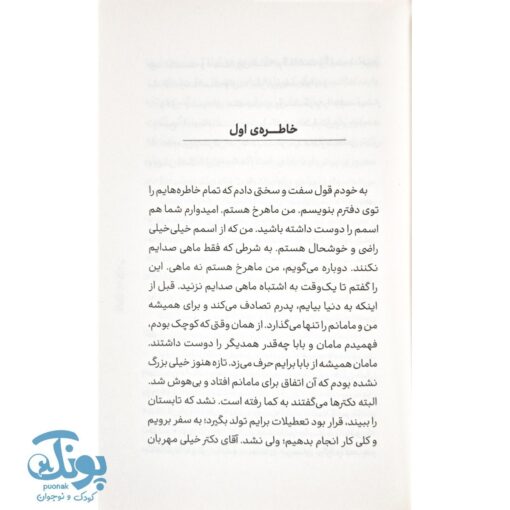 خاطـــره‌ی اول
به خودم قول سفت و سختی دادم که تمام خاطره‌هایم را
توی دفترم بنویسم. من ماهرخ هستم. امیدوارم شما هم
اسمم را دوست داشته باشید. من که از اسمم خیلی‌خیلی
راضی و خوشحال هستم. به شرطی که فقط ماهی صدایم
نکنند. دوباره می‌گویم، من ماهرخ هستم نه ماهی. این
را گفتم تا یک‌وقت به اشتباه ماهی صدایم نزنید. قبل از
اینکه به دنیا بیایم، پدرم تصادف می‌کند و برای همیشه
من و مامانم را تنها می‌گذارد. از همان وقتی که کوچک بودم،
فهمیدم مامان و بابا چه‌قدر همدیگر را دوست داشتند.
مامان همیشه از بابا برایم حرف می‌زد. تازه هنوز خیلی بزرگ
نشده بودم که آن اتفاق برای مامانم افتاد و بی‌هوش شد.
البته دکترها می‌گفتند به کما رفته است. نشد که تابستان
را ببیند، قرار بود تعطیلات برایم تولد بگیرد؛ به سفر برویم
و کلی کار انجام بدهیم؛ ولی نشد. آقای دکتر خیلی مهربان
پونک
puonak
کودک و نوجوان